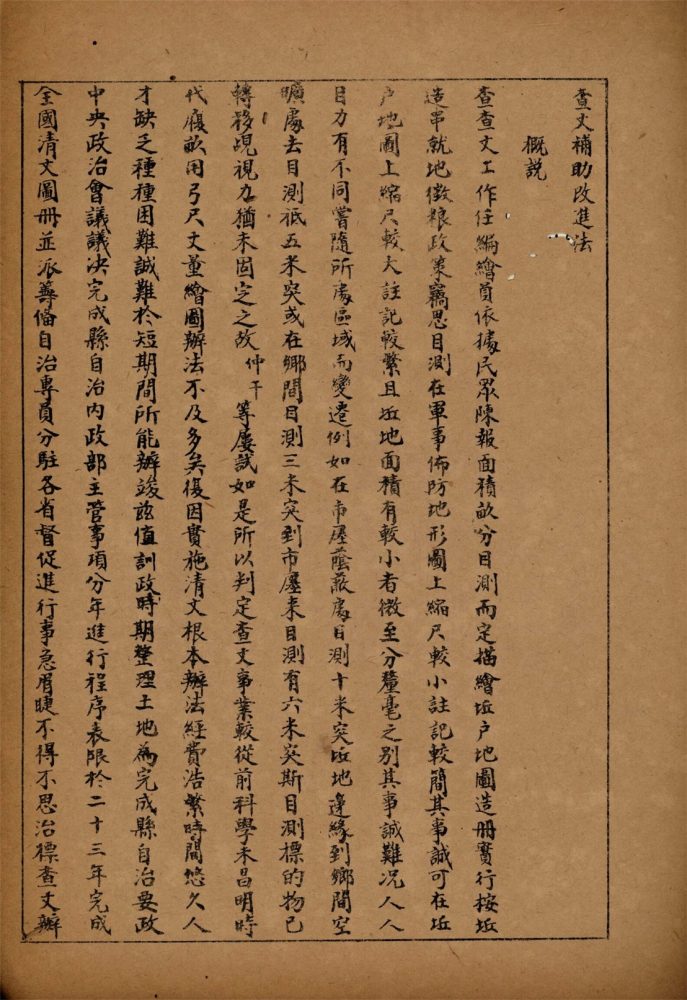 查丈補助改進法
概説
查查丈工作任編繪員依據民眾陳報面積畝分目測而定描繪坵戶地圖造册實行按坵
造串就地徵糧政策竊思目測在軍事佈防地形圖上縮尺較小註記較簡其事誠可在坵
戶地圖上縮尺較大註記較繁且坵地面積有較小者微至分釐毫之別其事誠難况人人
目力有不同嘗隨所處區域而變遷例如在市廛蔭蔽處目測十米突坵地邊緣到鄉間空
曠處去目測祇五米突或在鄉間目測三米突到市廛来目測有六米突斯目測標的物已
轉移現視力猶未固定之故仲干等屢試如是所以判定查丈事業較從前科學未昌明時
代履畝用弓尺丈量繪圖辦法不及多矣復因實施清丈根本辦法經費浩繁時間悠久人
才缺乏種種困難誠難於短期間所能辦竣兹值訓政時期整理土地為完成縣自治要政
中央政治會議議决完成縣自治内政部主管事項分年進行程序表限於二十三年完成
全國清丈圖册並派籌備自治專員分駐各省督促進行事急眉睫不得不思治標查丈辦